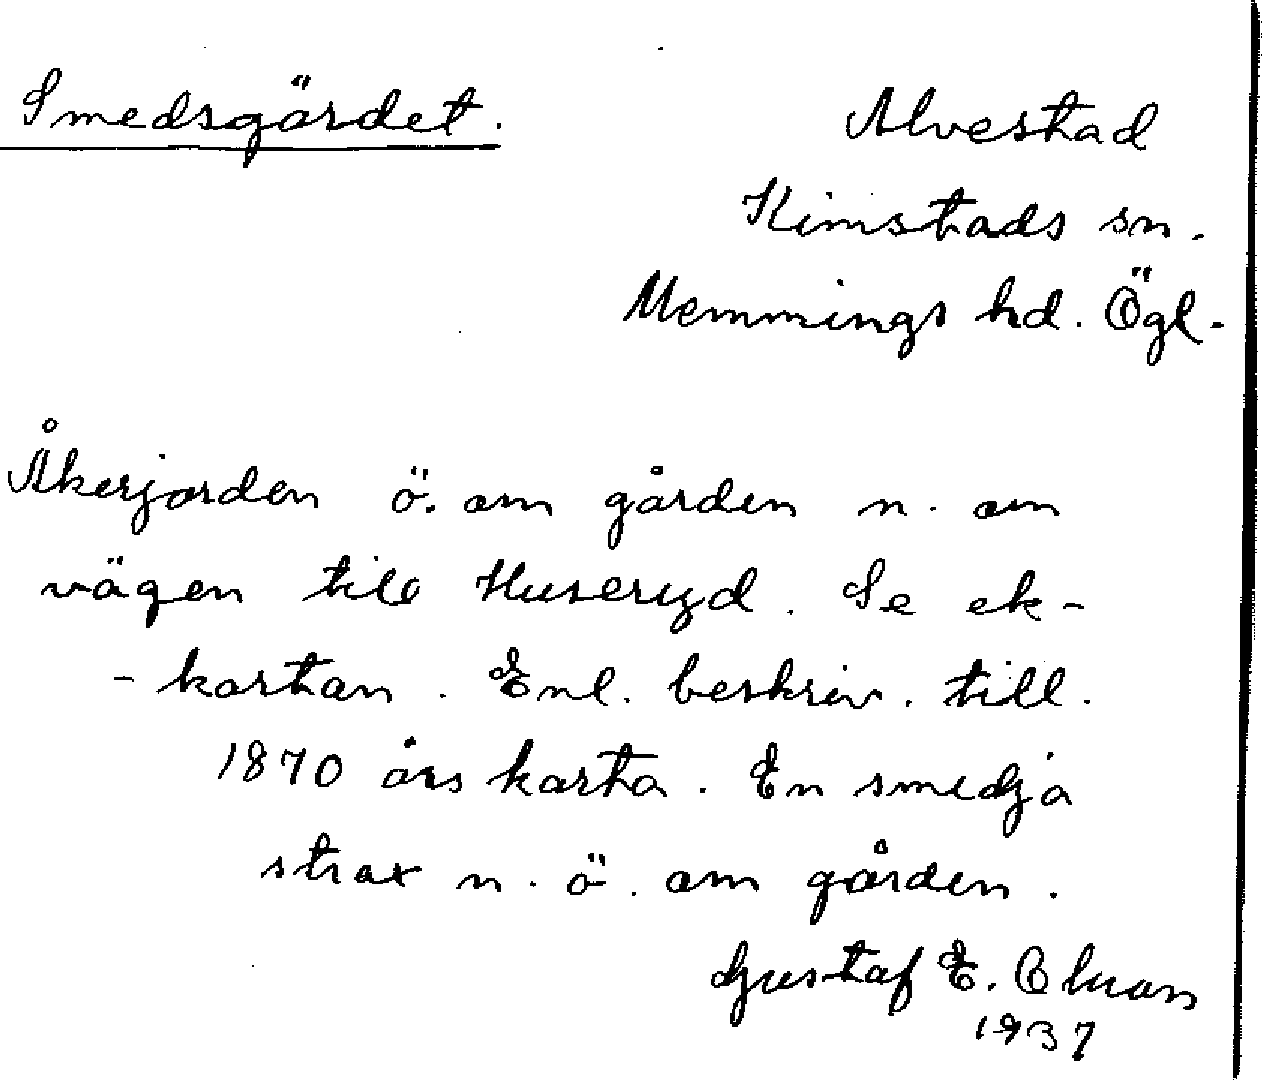 Smedsgärdet.
Alvestad
Kimstads sn.
Memmings hd. Ögl.
Åkerjorden ö. om gården n. om
vägen till Huseryd. Se ek-
- kartan. Enl. beskriv. till.
1870 års karta. En smedja
strax n. ö. om gården.
Gustaf E.
1937